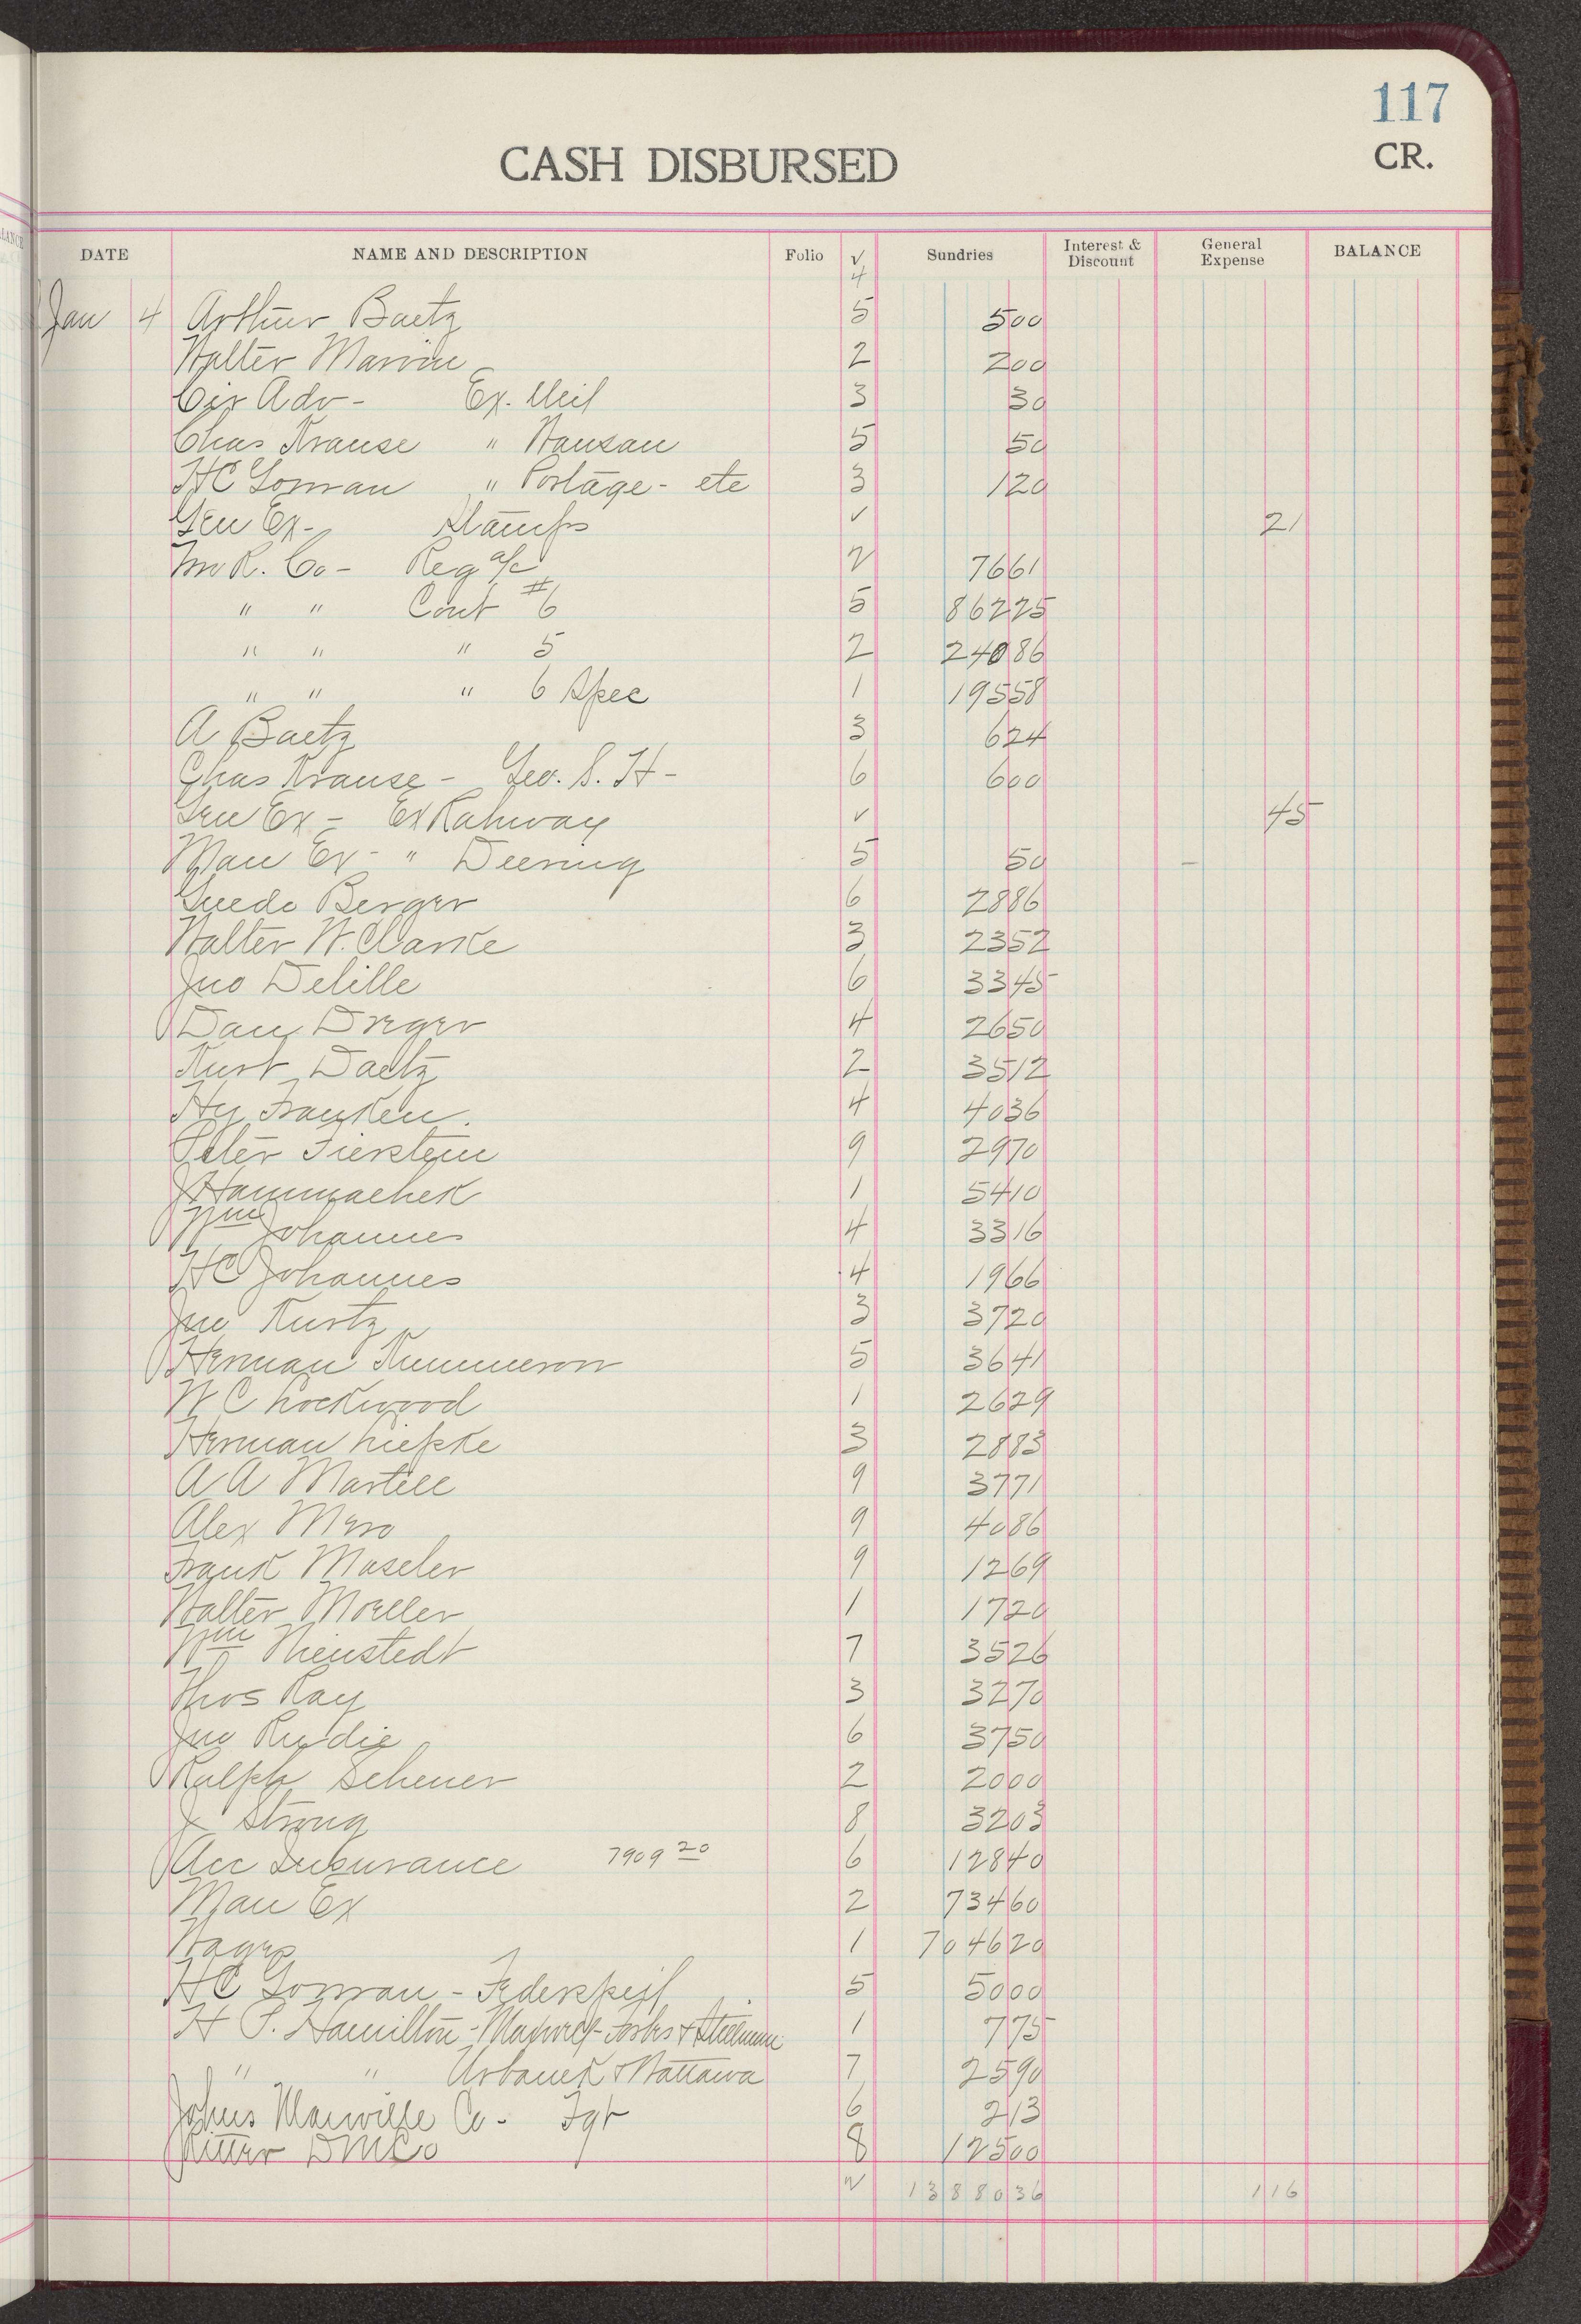 117
CASH DISBURSED
CR.
DATE NAME AND DESCRIPTION Folio Sundries Interest & Discount General Expense BALANCE
✓
4
Jan 4 Arthur Baetz 5 500
Walter Marvin 2 200
Cir Adv - Ex. 3 30
Chas Krause " Wausau 5 50
HC Gowran " Portage - etc 3 120
Gen Ex - Stamps ✓ 21
R. Co - Reg a/c 2 7661
" " Cont #6 5 86225
" " " 5 2 24086
" " " 6 Spec 1 19558
A Baetz 3 624
Chas Krause - Geo. S. H - 6 600
Gen Ex - Ex Rahway ✓ 45
Man Ex - " Deering 5 50 -
Guedo Berger 6 2886
Walter W. Clarke 3 2352
Jno Delille 6 3345
Dan Dreger 4 2650
Kurt Daetz 2 3512
Hy Franken. 4 4036
Peter Fierstein 9 2970
J Hammachek 1 5410
Wm Johannes 4 3316
HC Johannes 4 1966
Jno Kurtz 3 3720
Herman Kummerow 5 3641
W C Lockwood 1 2629
Herman Liepke 3 2883
A A Martell 9 3771
Alex Mero 9 4086
Frank Maseler 9 1269
Walter Moeller 1 1720
Wm Nienstedt 7 3526
Thos Ray 3 3270
Jno Rudie 6 3750
Ralph Scheuer 2 2000
J Strong 8 3203
Acc Insurance 7909 20 6 12840
Man Ex 2 73460
Wages 1 704620
HC Gowran - Federspeil 5 5000
H P. Hamilton - - Forbes & 1 775
" " Urbanek & Wattawa 7 2590
Johns Manville Co - Fgt 6 213
Ritter DMCo 8 12500
✓ 1388036 116